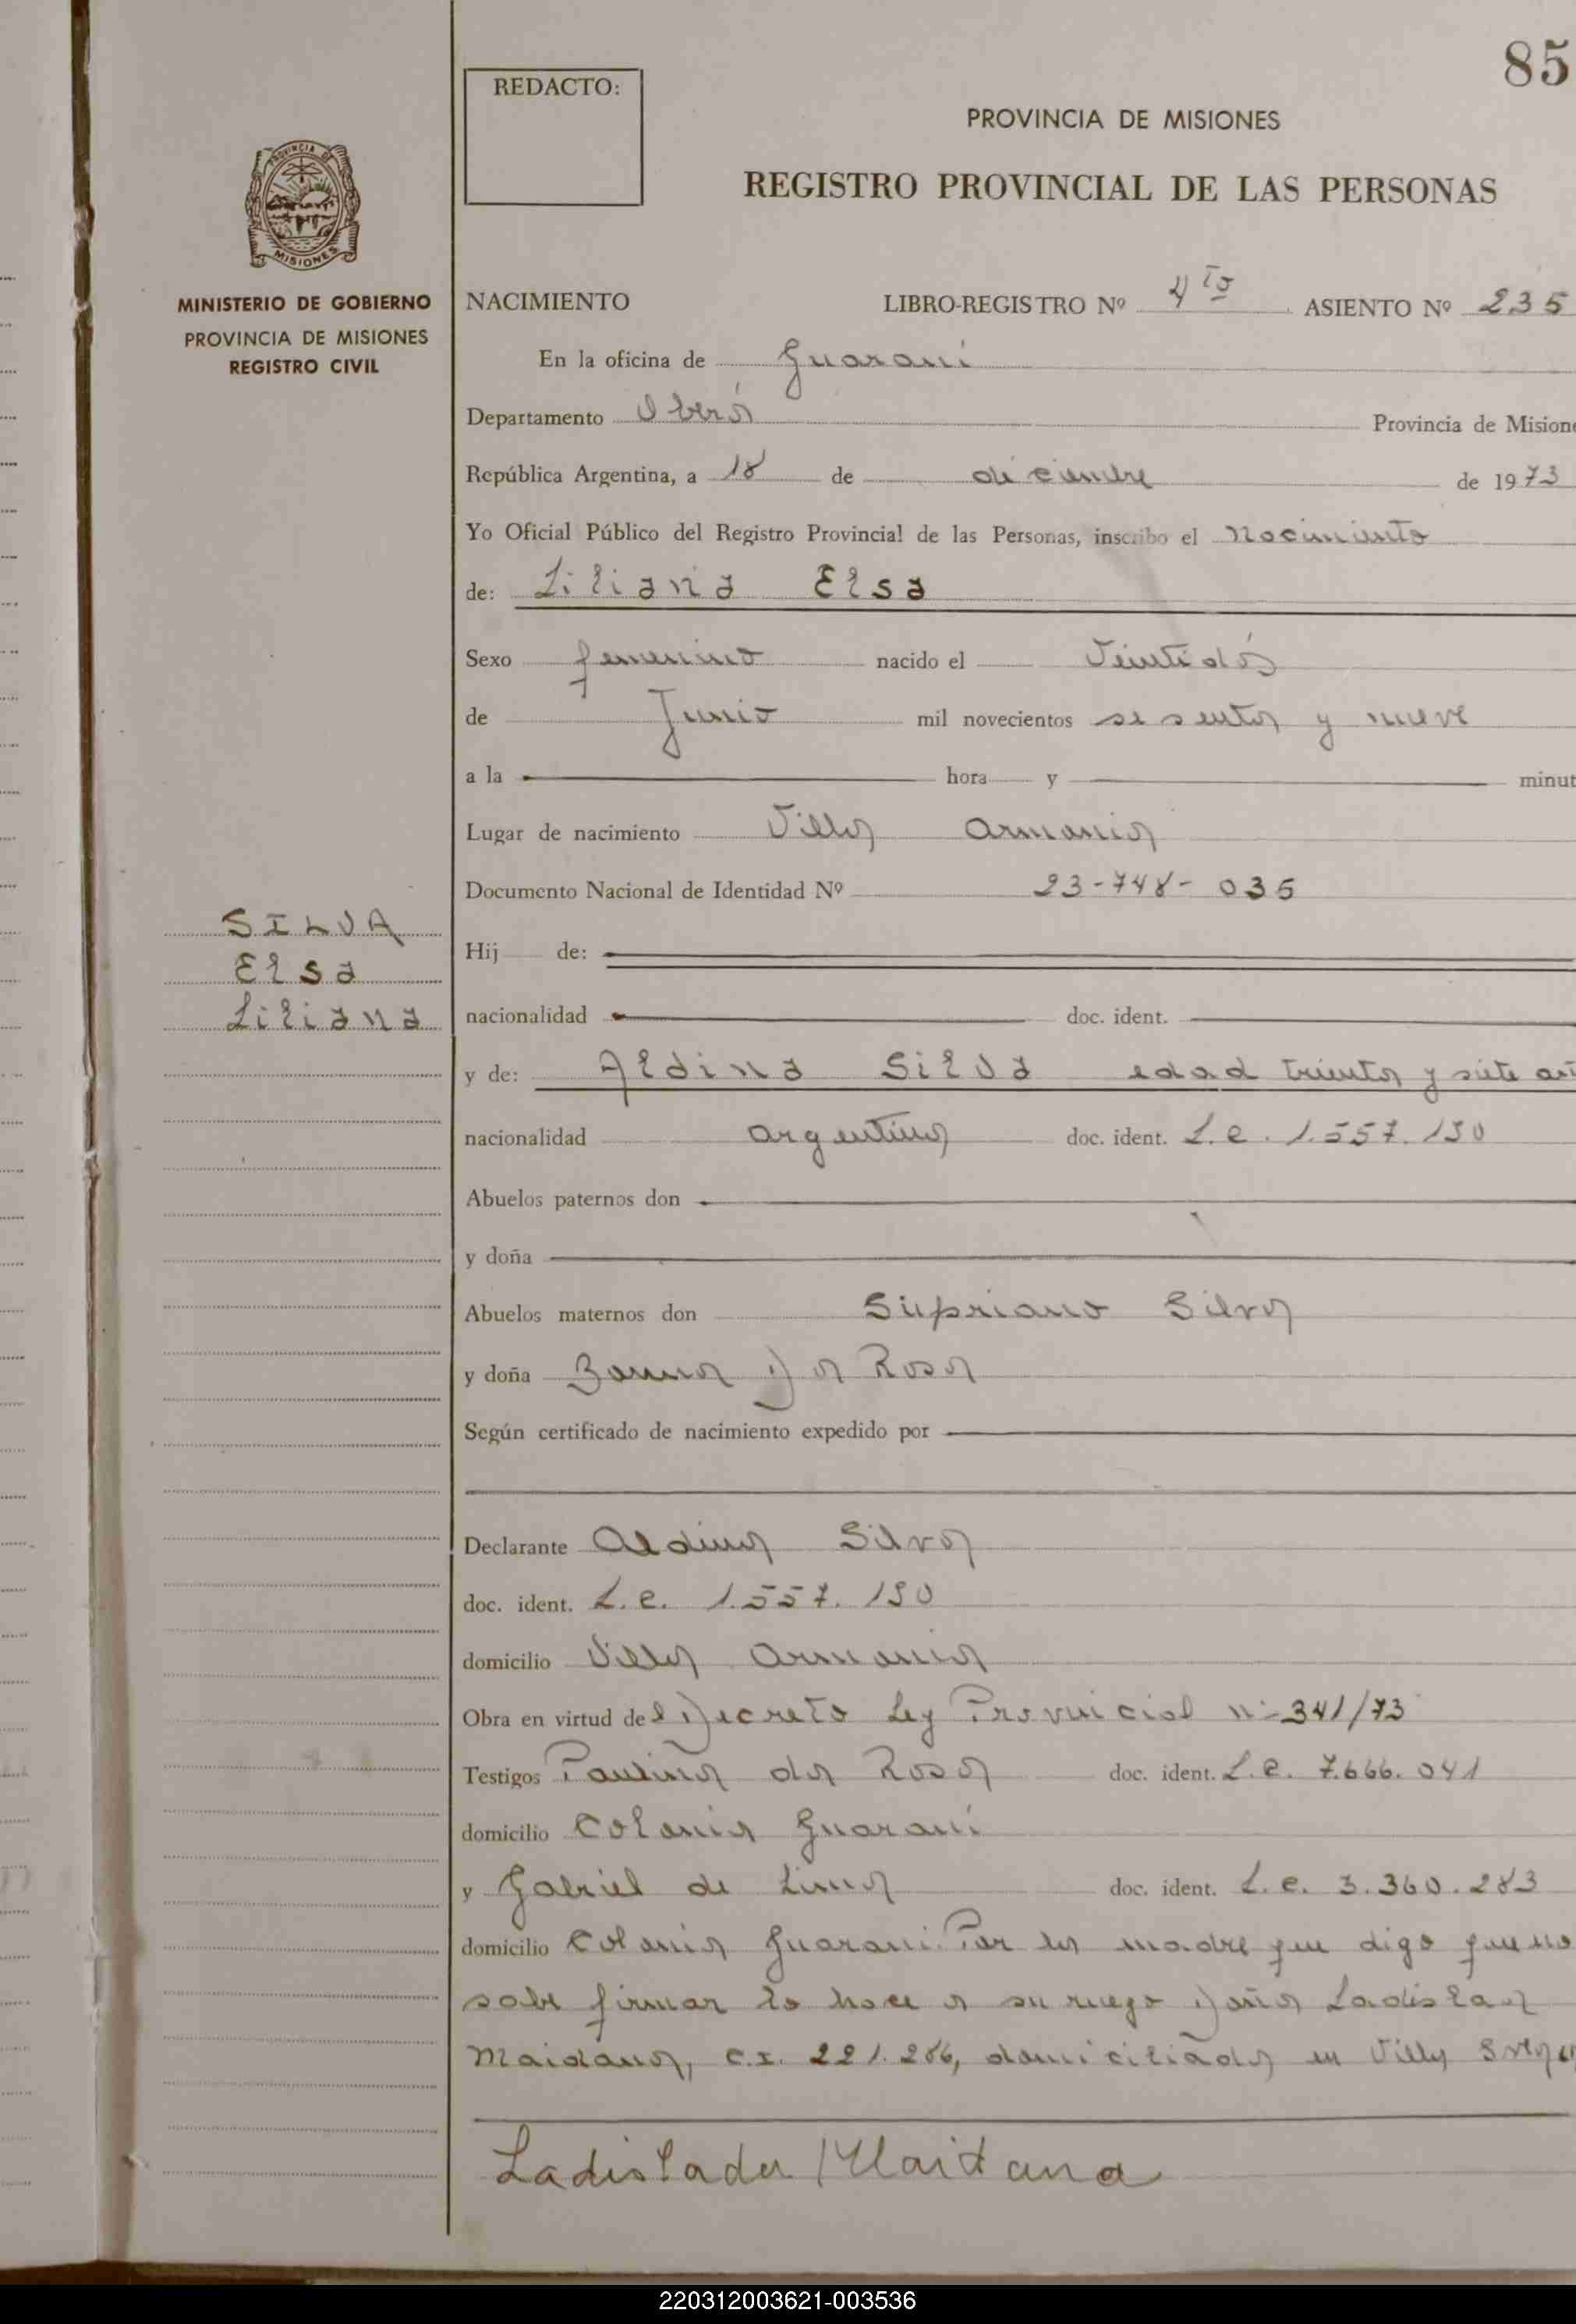 85
REDACTO:
PROVINCIA DE MISIONES
REGISTRO PROVINCIAL DE LAS PERSONAS
PROVINCIA DE
MISIONES
MINISTERIO DE GOBIERNO
PROVINCIA DE MISIONES
REGISTRO CIVIL
NACIMIENTO LIBRO-REGISTRO Nº 4to ASIENTO Nº 235
En la oficina de Guaraní
Departamento Oberá Provincia de Misione
República Argentina, a 18 de diciembre de 1973
Yo Oficial Público del Registro Provincial de las Personas, inscribo el Nacimiento
de: Liliana Elsa
Sexo femenino nacido el Veintidós
de Junio mil novecientos sesenta y nueve
a la hora y minut
Lugar de nacimiento Villa Armonia
Documento Nacional de Identidad Nº 23-748-035
SILVA
Elsa
Liliana
Hij de:
nacionalidad doc. ident.
y de: Aldina Silva edad treinta y siete añ
nacionalidad argentina doc. ident. L.c. 1.557.130
Abuelos paternos don
y doña
Abuelos maternos don Supriano Silva
y doña Da Rosa
Según certificado de nacimiento expedido por
Declarante Aldina Silva
doc. ident. L.c. 1.557.130
domicilio Villa Armonia
Obra en virtud del Decreto Ley Provincial nº 341/73
Testigos Paulina da Rosa doc. ident. L.e. 7.666.041
domicilio Colonia Guaraní
y Gabriel de Lima doc. ident. L.e. 3.360.283
domicilio Colonia Guaraní. Por la madre que digo que no
sabe firmar lo hace a su ruego Doña Ladislaa
Maidana, C.I. 221.286, domiciliada en Villa
Ladislada Maidana
220312003621-003536